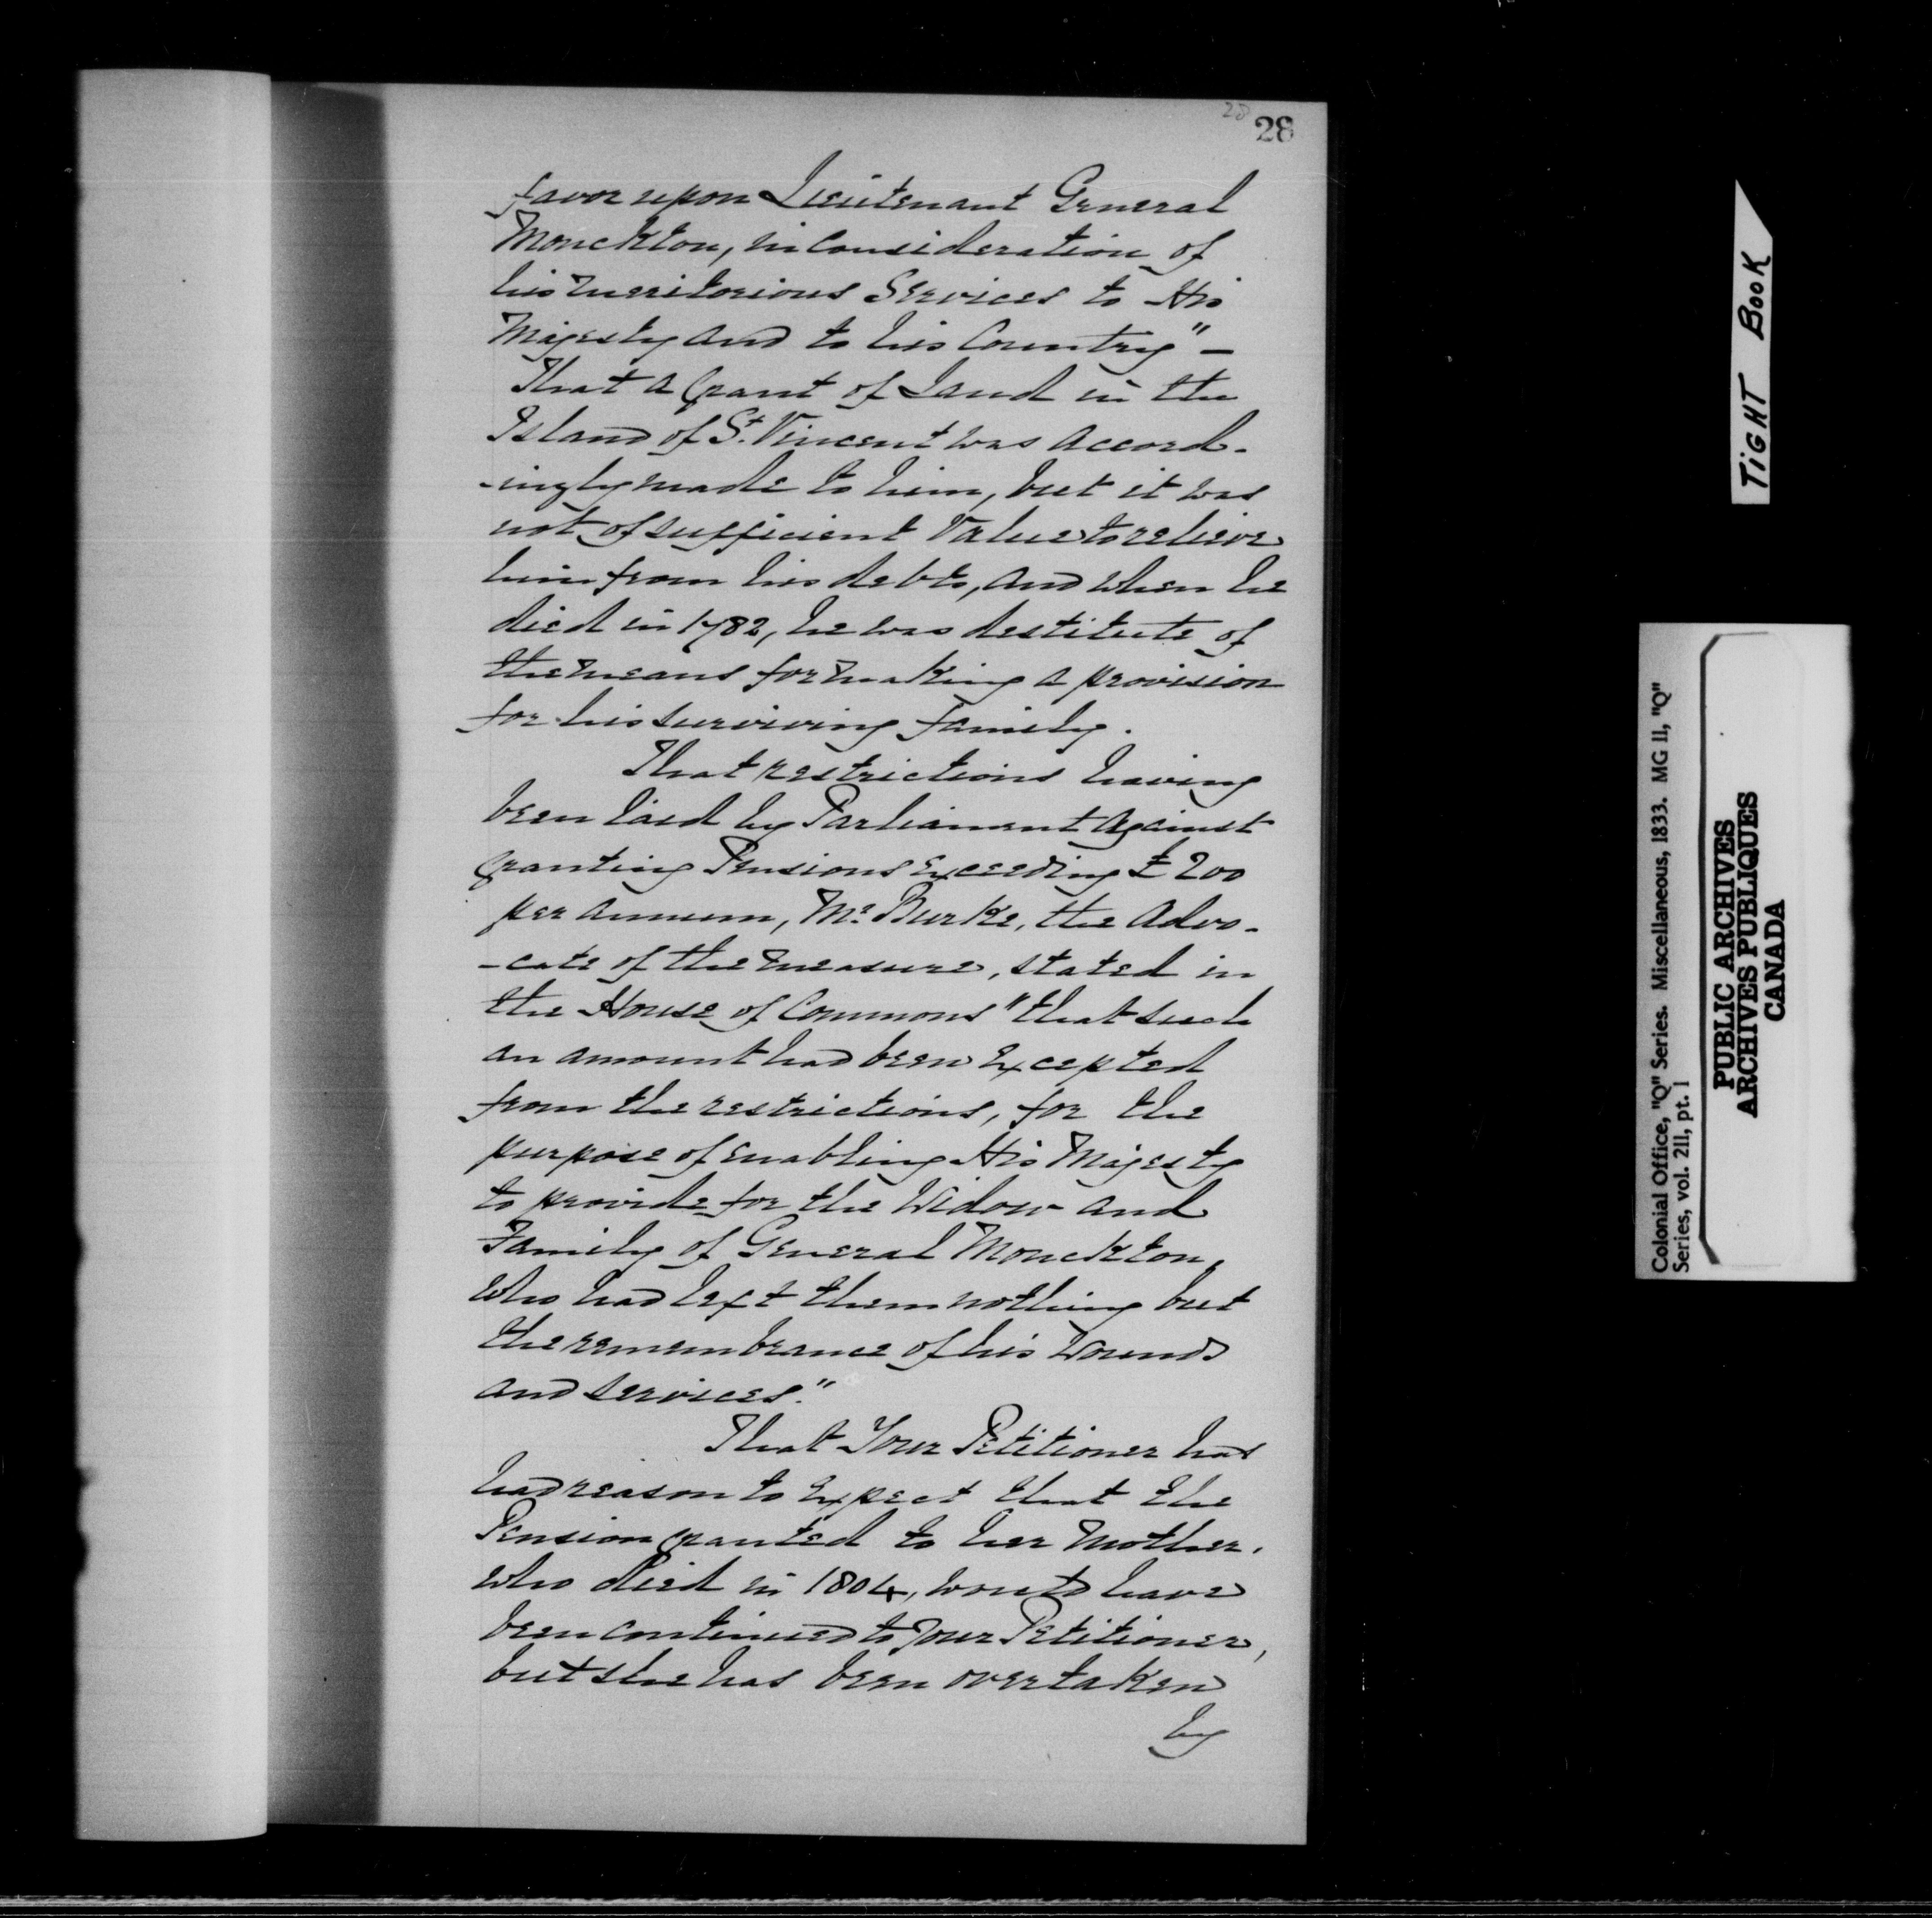 28
28
favor upon Lieutenant General
Monckton, in Consideration of
his meritorious Services to His
Majesty and to his Country" —
That a Grant of Land in the
Island of St. Vincent was accord-
-ingly made to him, but it was
not of sufficient Value to relieve
him from his debts, and when he
died in 1782, he was destitute of
the means for making a provision
for his surviving family.
That restrictions having
been laid by Parliament against
granting Pensions Exceeding £200
per annum, Mr. Burke, the Advo-
-cate of the measure, stated in
the House of Commons "that such
an amount had been Excepted
from the restrictions, for the
purpose of enabling His Majesty
to provide for the Widow and
Family of General Monckton,
who had left them nothing but
the remembrance of his Wounds
and services."
That Your Petitioner has
had reason to Expect that the
Pension granted to her Mother,
who died in 1804, would have
been continued to Your Petitioner,
but she has been overtaken
by
TIGHT BOOK
Colonial Office, "Q" Series. Miscellaneous, 1833. MG II, "Q"
Series, vol. 211, pt. 1
PUBLIC ARCHIVES
ARCHIVES PUBLIQUES
CANADA